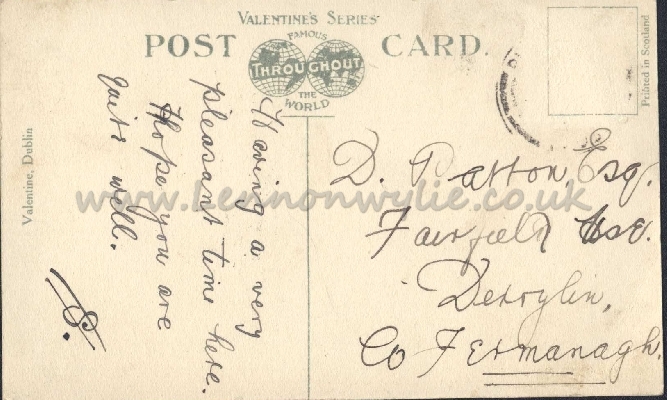 VALENTINE'S SERIES
FAMOUS
POST CARD.
THROUGHOUT
THE
WORLD
Printed in Scotland
Valentine, Dublin
Having a very
pleasant time here.
Hope you are
quite well.
E.
D. Patton, Esq.
Fairfield Hse.
Derrylin,
Co Fermanagh.
www.Lennonwylie.co.uk